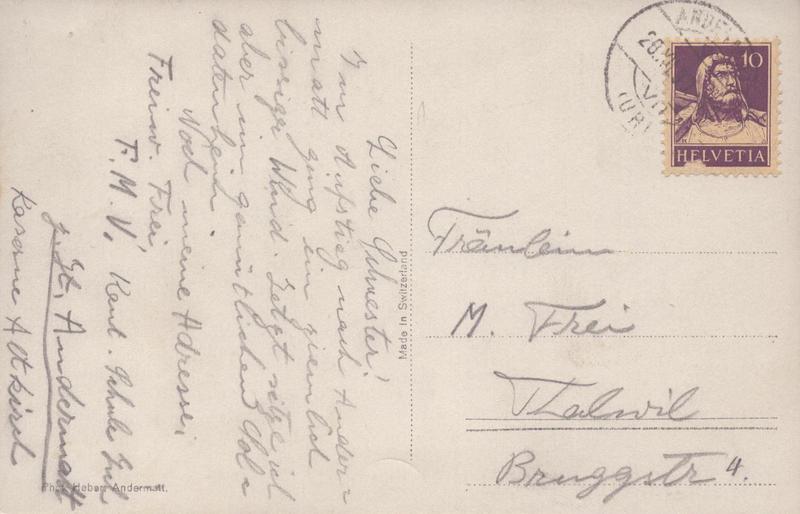 Liebe Schwester!
Im Aufstieg nach Ander=
matt ging ein ziemlich
bissiger Wind. Jetzt sitze ich
aber im gemütlichen Sol=
datenheim.
Noch meine Adresse;
Freiw. Frei
F.M.V, Schule
z. Zt. Andermatt
Kaserne Altkirch
Made in Switzerland
Andermatt.
10
HELVETIA
(URI
Fräulein
M. Frei
Thalwil
Bruggstr 4.